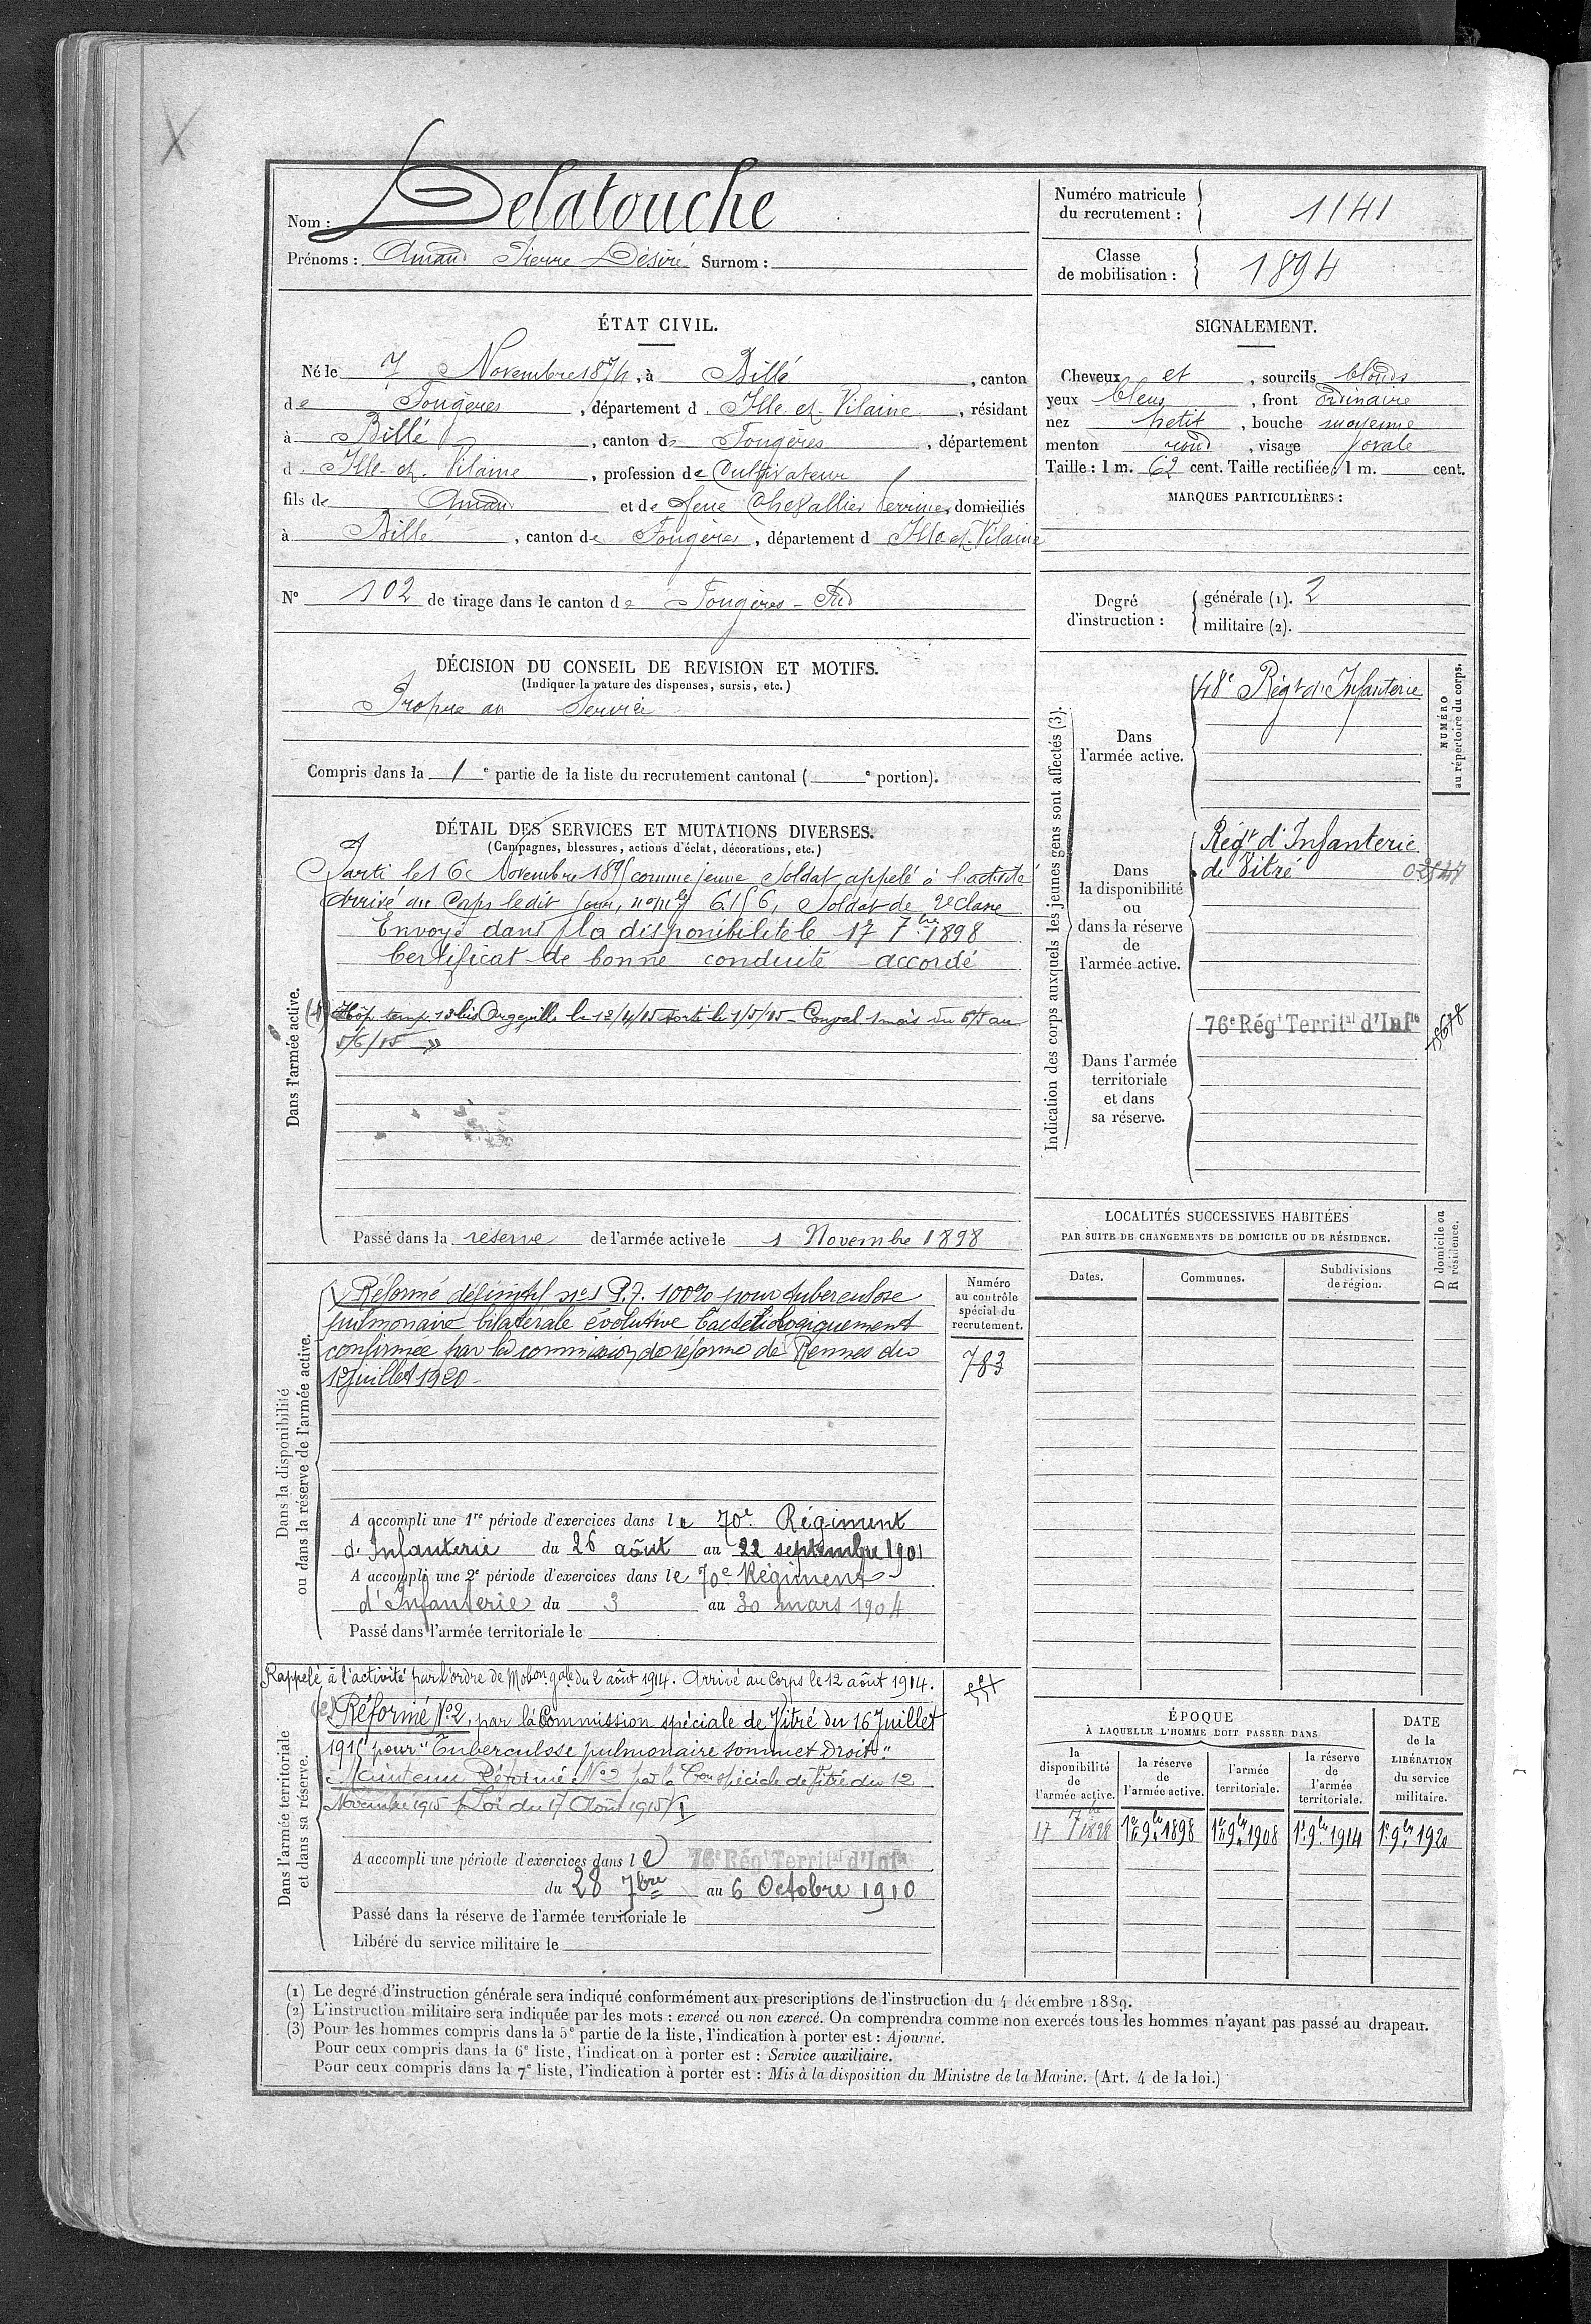 Nom : Delatouche
Prénoms : Amand Pierre Désiré Surnom :
Numéro matricule du recrutement : 1141
Classe de mobilisation : 1894
ÉTAT CIVIL.
Né le 7 Novembre 1874, à Billé, canton
de Fougères, département d'Ille-et-Vilaine, résidant
à Billé, canton de Fougères, département
d'Ille-et-Vilaine, profession de Cultivateur
fils de Amand et de feue Chevallier Perrine, domiciliés
à Billé, canton de Fougères, département d'Ille-et-Vilaine
N° 102 de tirage dans le canton de Fougères-Sud
SIGNALEMENT.
Cheveux et, sourcils blonds
yeux bleus, front ordinaire
nez petit, bouche moyenne
menton rond, visage ovale
Taille : 1 m. 62 cent. Taille rectifiée : 1 m. cent.
MARQUES PARTICULIÈRES :
Degré d'instruction :
générale (1). 2
militaire (2).
DÉCISION DU CONSEIL DE REVISION ET MOTIFS.
(Indiquer la nature des dispenses, sursis, etc.)
Propre au Service
Compris dans la 1e partie de la liste du recrutement cantonal ( e portion).
DÉTAIL DES SERVICES ET MUTATIONS DIVERSES.
(Campagnes, blessures, actions d'éclat, décorations, etc.)
Dans l'armée active.
Parti le 16 Novembre 1895 comme jeune Soldat appelé à l'activité
Arrivé au Corps le dit jour, no mle 6156, Soldat de 2e classe
Envoyé dans la disponibilité le 17 7bre 1898
Certificat de bonne conduite accordé
(1) Hôp. temp. 13 bis le 12/4/15 sorti le 1/5/15 - Conval. 1 mois du 5/5 au
5/6/15 »
Passé dans la réserve de l'armée active le 1 Novembre 1898
Indication des corps auxquels les jeunes gens sont affectés (3).
NUMÉRO au répertoire du corps.
Dans l'armée active.
48e Régt d'Infanterie
Dans la disponibilité ou dans la réserve de l'armée active.
Régt d'Infanterie
de Vitré
Dans l'armée territoriale et dans sa réserve.
76e Régt Territal d'Infie
LOCALITÉS SUCCESSIVES HABITÉES
PAR SUITE DE CHANGEMENTS DE DOMICILE OU DE RÉSIDENCE.
Dates.
Communes.
Subdivisions de région.
D domicile ou R résidence.
Dans la disponibilité ou dans la réserve de l'armée active.
Réformé définitif no 1 P.T. 100% pour tuberculose
pulmonaire bilatérale évolutive bactériologiquement
confirmée par la commission de réforme de Rennes du
12 juillet 1920 -
Numéro au contrôle spécial du recrutement.
783
A accompli une 1re période d'exercices dans le 70e Régiment
d'Infanterie du 26 août au 22 septembre 1901
A accompli une 2e période d'exercices dans le 70e Régiment
d'Infanterie du 3 au 30 mars 1904
Passé dans l'armée territoriale le
Dans l'armée territoriale et dans sa réserve.
Rappelé à l'activité par l'ordre de Mobon gale du 2 août 1914. Arrivé au Corps le 12 août 1914.
(2) Réformé No 2, par la Commission spéciale de Vitré du 16 Juillet
1915 pour "Tuberculose pulmonaire sommet droit."
Maintenu Réformé No 2 par la Con spéciale de Vitré du 12
Novembre 1915 Loi du 17 Août 1915
A accompli une période d'exercices dans le 76e Régt Territal d'Infie
du 28 7bre au 6 Octobre 1910
Passé dans la réserve de l'armée territoriale le
Libéré du service militaire le
ÉPOQUE
À LAQUELLE L'HOMME DOIT PASSER DANS
la disponibilité de l'armée active.
la réserve de l'armée active.
l'armée territoriale.
la réserve de l'armée territoriale.
DATE de la LIBÉRATION du service militaire.
17 7bre 1898
1er 9bre 1898
1er 9bre 1908
1er 9bre 1914
1er 9bre 1920
(1) Le degré d'instruction générale sera indiqué conformément aux prescriptions de l'instruction du 4 décembre 1889.
(2) L'instruction militaire sera indiquée par les mots : exercé ou non exercé. On comprendra comme non exercés tous les hommes n'ayant pas passé au drapeau.
(3) Pour les hommes compris dans la 5e partie de la liste, l'indication à porter est : Ajourné.
Pour ceux compris dans la 6e liste, l'indication à porter est : Service auxiliaire.
Pour ceux compris dans la 7e liste, l'indication à porter est : Mis à la disposition du Ministre de la Marine. (Art. 4 de la loi.)